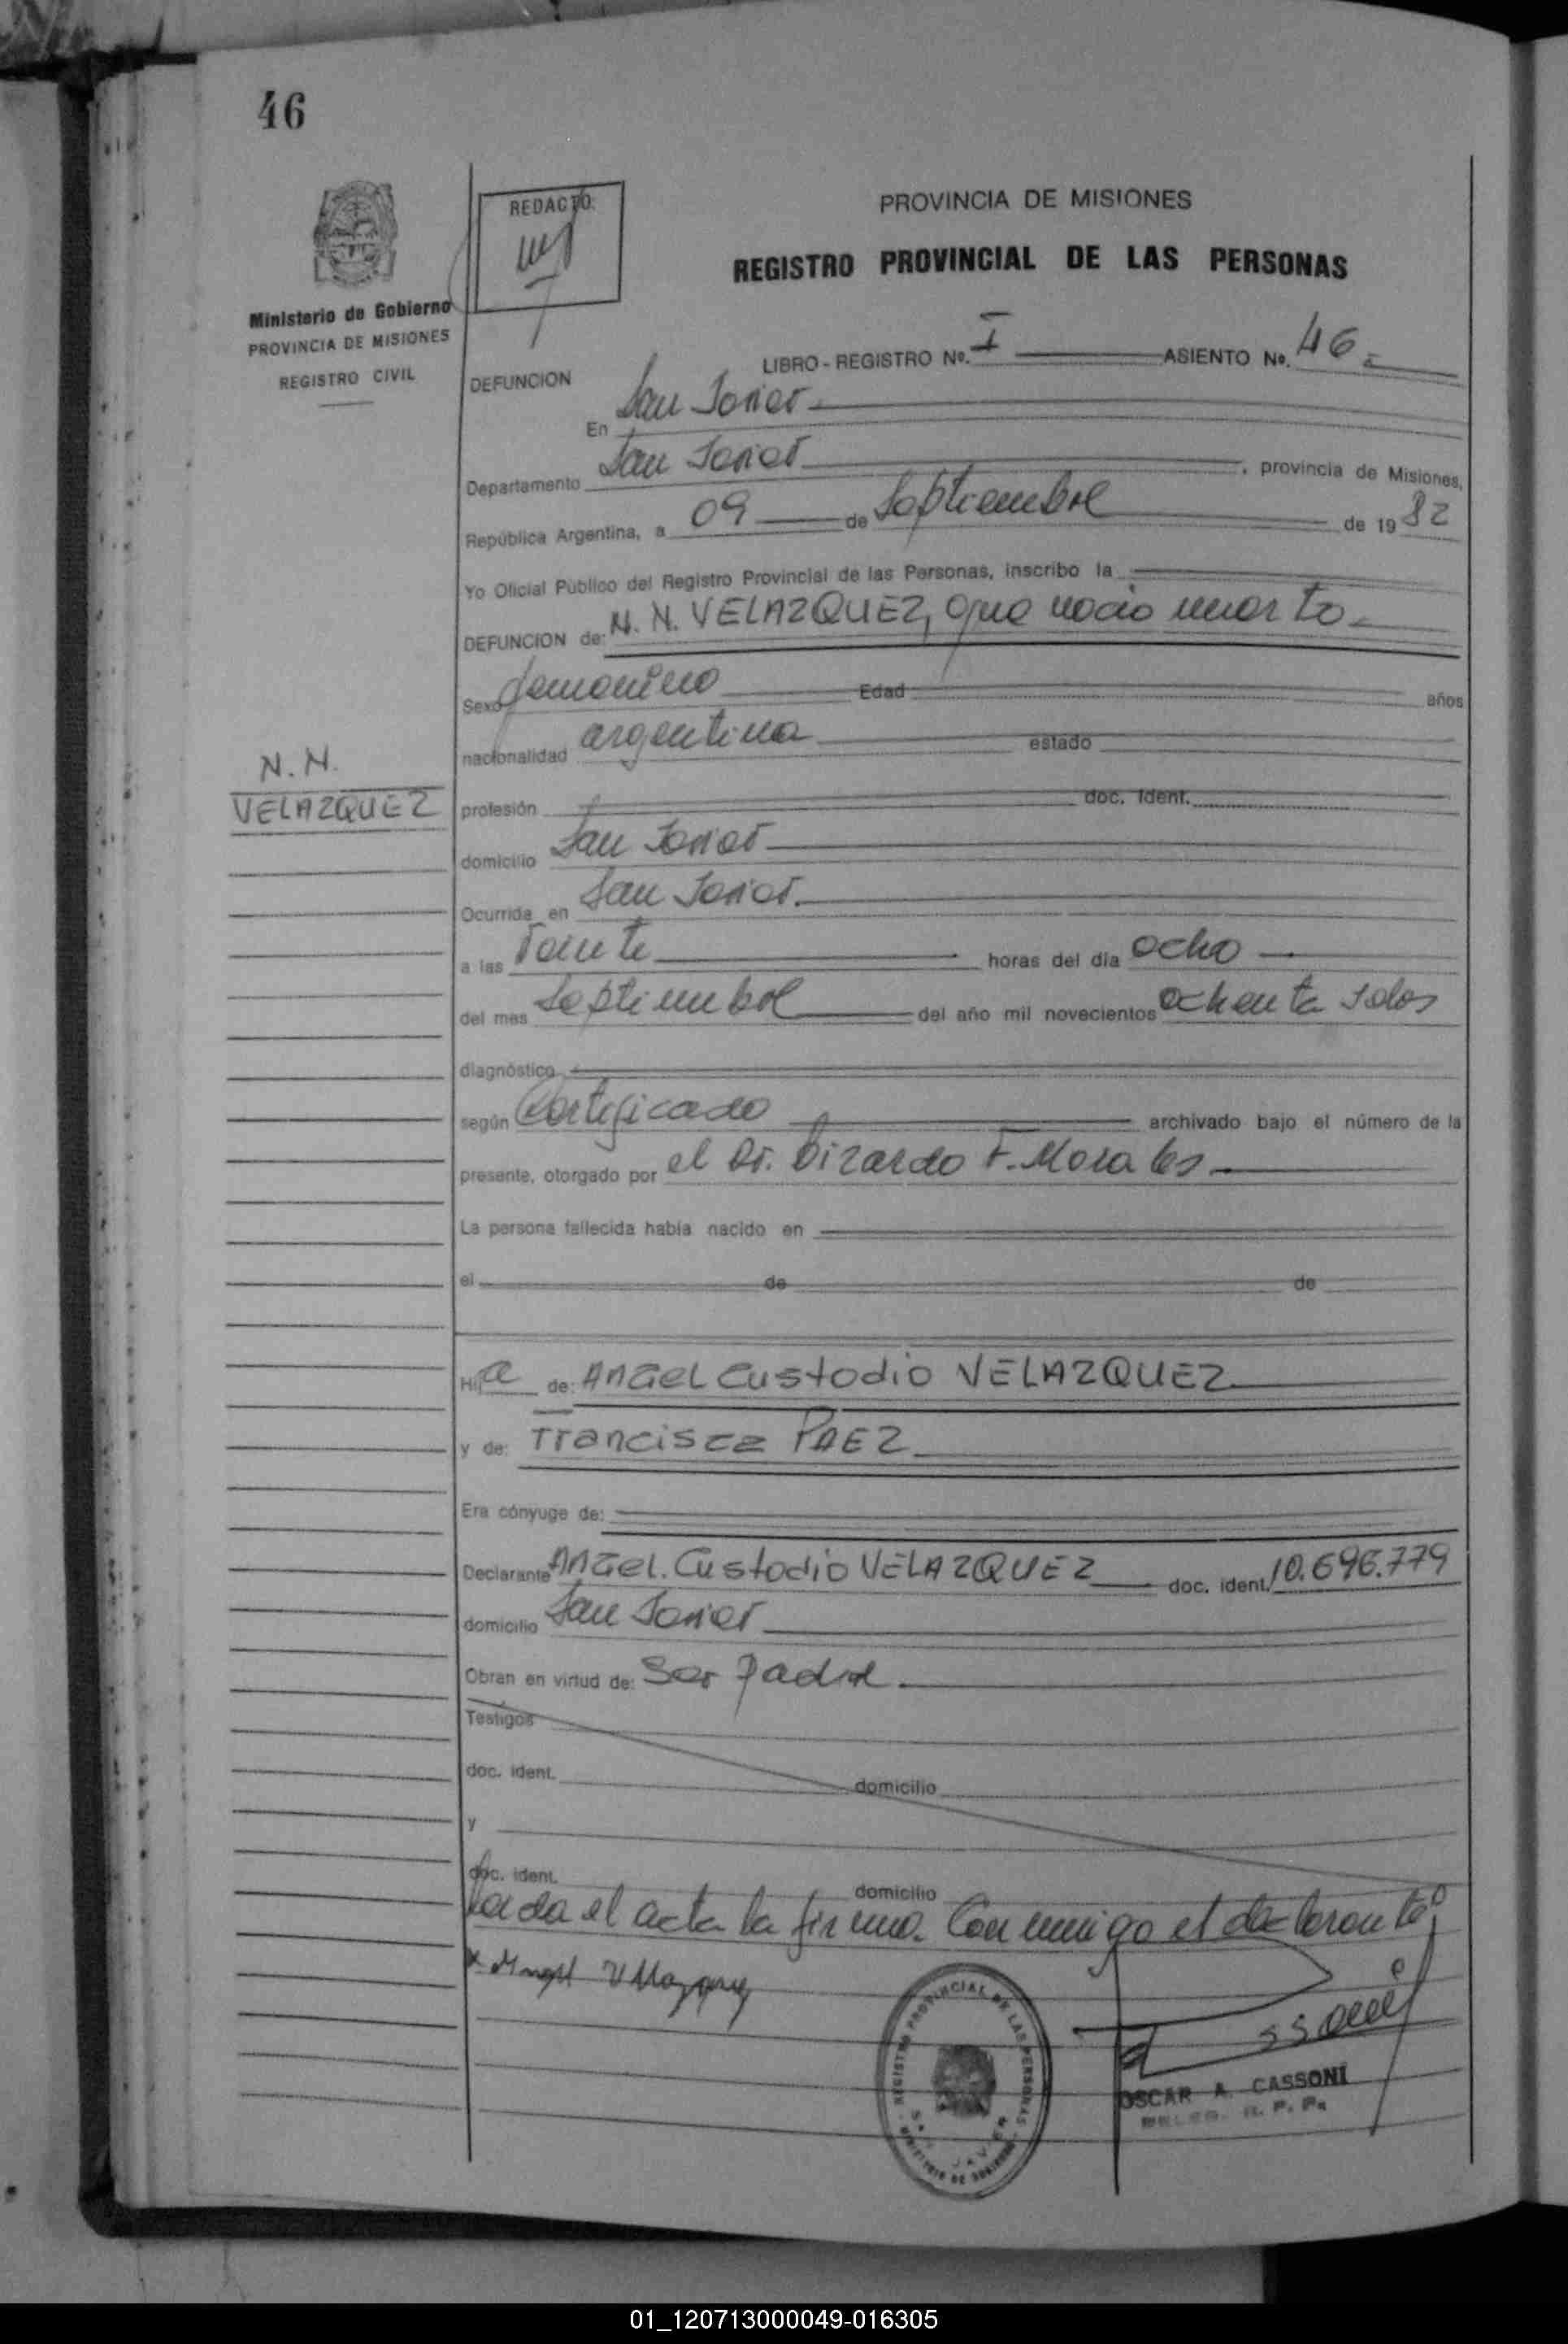 46
REDACTO:
Ministerio de Gobierno
PROVINCIA DE MISIONES
REGISTRO CIVIL
PROVINCIA DE MISIONES
REGISTRO PROVINCIAL DE LAS PERSONAS
LIBRO - REGISTRO No. I ASIENTO No. 46.
DEFUNCION
En San Javier
Departamento San Javier, provincia de Misiones,
República Argentina, a 09 de Septiembre de 19 82
Yo Oficial Público del Registro Provincial de las Personas, inscribo la
DEFUNCION de: N. N. VELAZQUEZ, que nació muerto.
Sexo femenino Edad años
nacionalidad argentina estado
N. N.
VELAZQUEZ
profesión doc. ident.
domicilio San Javier
Ocurrida en San Javier.
a las veinte horas del día ocho
del mes Septiembre del año mil novecientos ochenta y dos
diagnóstico
según Certificado archivado bajo el número de la
presente, otorgado por el Dr. Lizardo F. Morales
La persona fallecida había nacido en
el de de
Hija de: ANGEL Custodio VELAZQUEZ
y de: Francisca PAEZ
Era cónyuge de:
Declarante ANGEL. Custodio VELAZQUEZ doc. ident. 10.696.779
domicilio San Javier
Obran en virtud de: Ser padre.
Testigos
doc. ident. domicilio
y
doc. ident. domicilio
Leída el acta la firma. Conmigo el declarante
REGISTRO PROVINCIAL DE LAS PERSONAS
SAN JAVIER
MINISTERIO DE GOBIERNO
OSCAR A. CASSONI
DELEG. R. P. P.
01_120713000049-016305